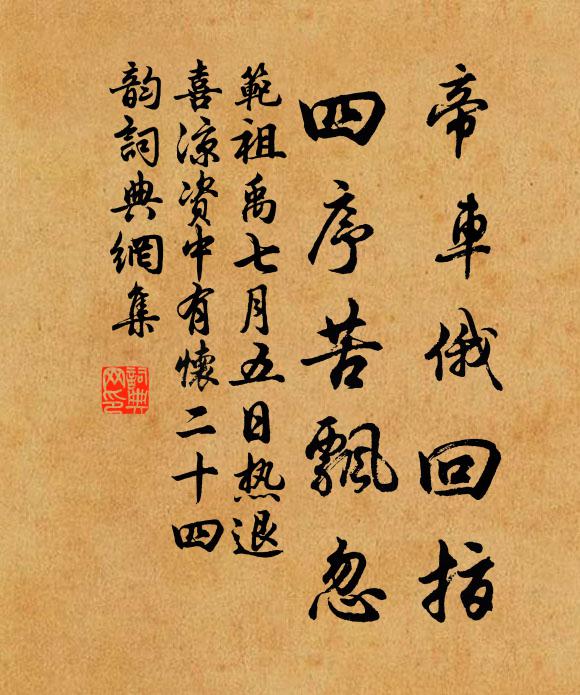 帝車俄回指
四序苦飄忽
範祖禹七月五日热退
喜凉资中有懷二十四
韵詞典網集
詞典
网印